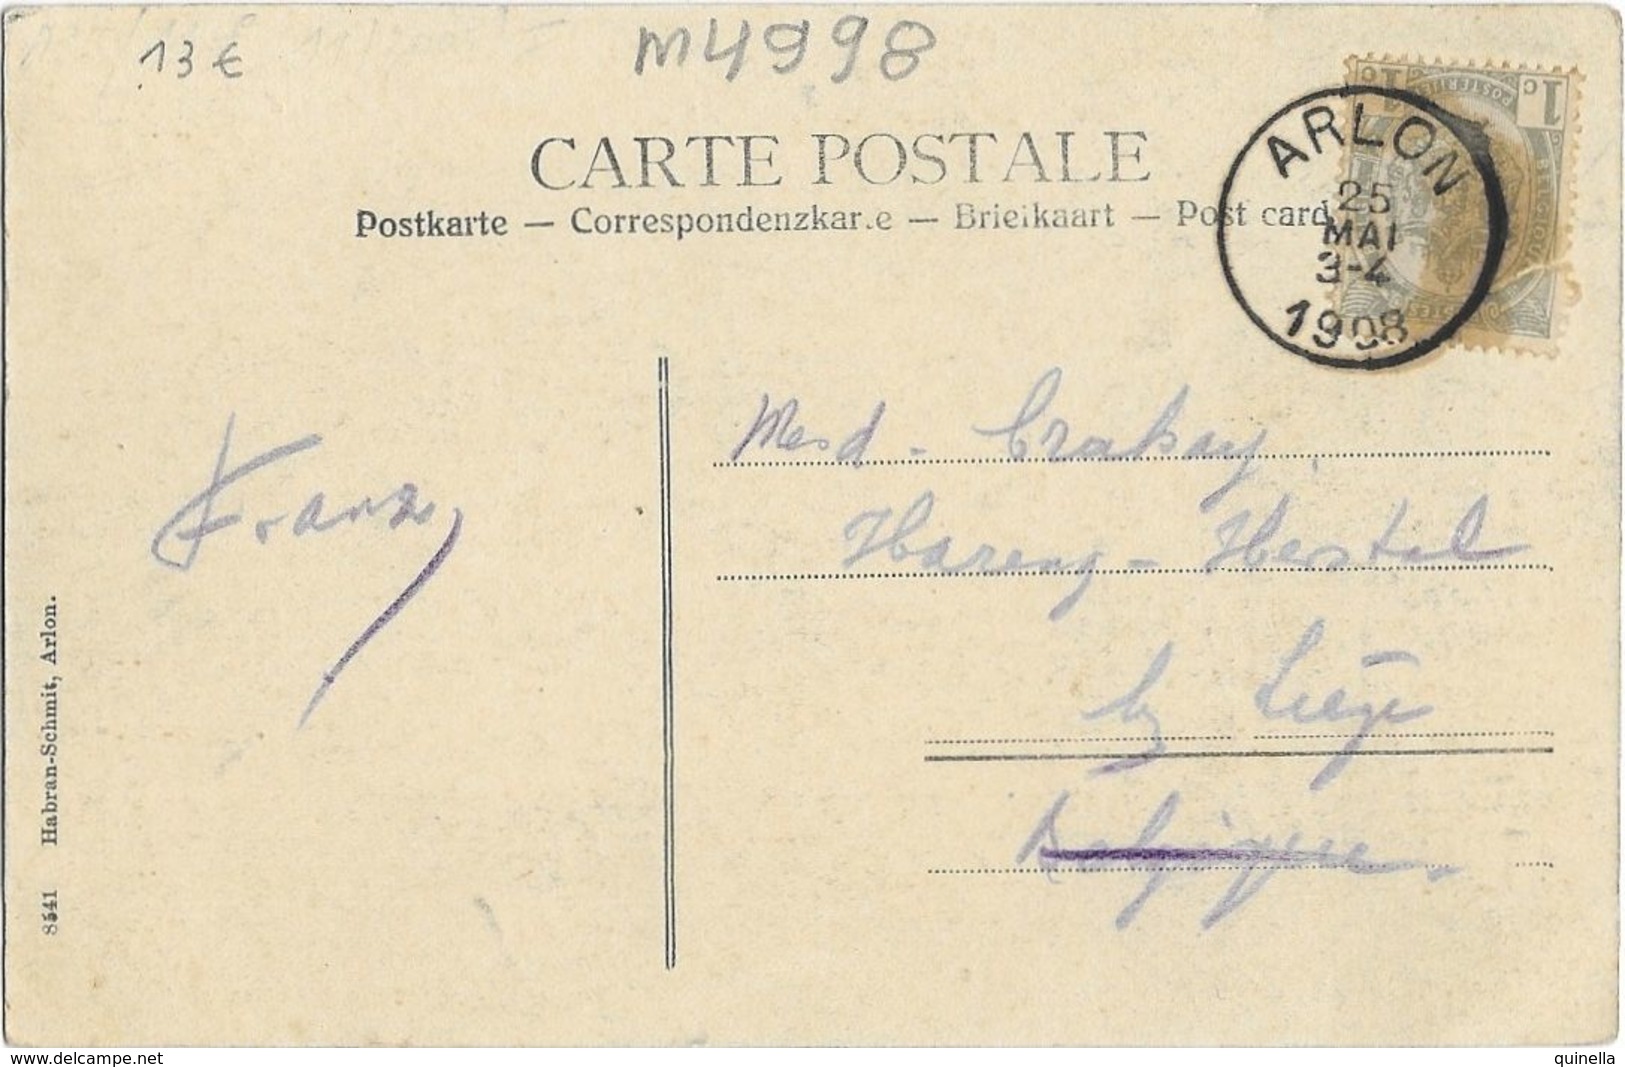 13 €
m4998
CARTE POSTALE
Postkarte — Correspondenzkar.e — Briefkaart — Post card
ARLON
25
MAI
3-4
1908
1c
1c
POSTERIJEN
Med - Crahay,
Hareng - Herstal
by Liége
Belgique.
Franz
8541 Habran-Schmit, Arlon.
www.delcampe.net
quinella